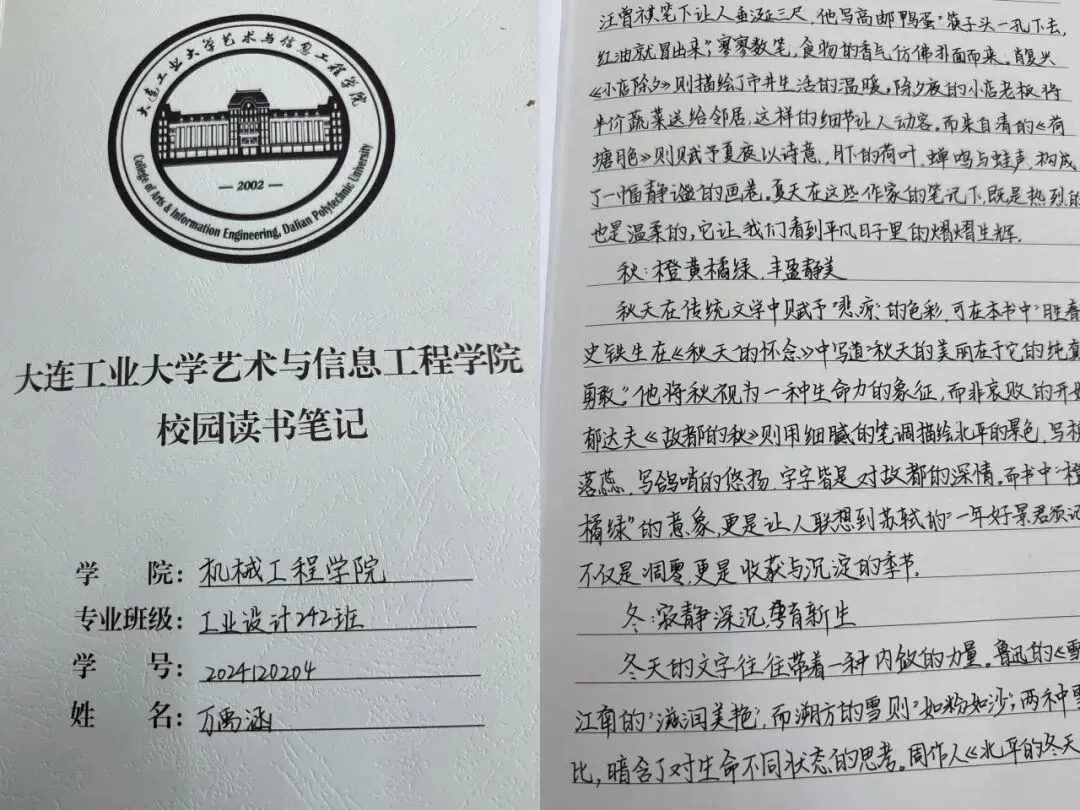 大连工业大学艺术与信息工程学院
2002
College of Arts & Information Engineering, Dalian Polytechnic University
大连工业大学艺术与信息工程学院
校园读书笔记
学 院：机械工程学院
专业班级：工业设计242班
学 号：2024120204
姓 名：万禹涵
汪曾祺笔下让人垂涎三尺，他写高邮鸭蛋“筷子头一孔下去，
红油就冒出来”，寥寥数笔，食物的香气仿佛扑面而来。肖复兴
《小店除夕》则描绘了市井生活的温暖。除夕夜的小店老板将
半价蔬菜送给邻居，这样的细节让人动容。而朱自清的《荷
塘月色》则赋予夏夜以诗意，月下的荷叶，蝉鸣与蛙声，构成
了一幅静谧的画卷。夏天在这些作家的笔记下，既是热烈的
也是温柔的，它让我们看到平凡日子里的熠熠生辉。
秋：橙黄橘绿，丰盈静美
秋天在传统文学中赋予“悲凉”的色彩，可在本书中“胜春
史铁生在《秋天的怀念》中写道“秋天的美丽在于它的纯真
勇敢”。他将秋视为一种生命力的象征，而非哀败的开始
郁达夫《故都的秋》则用细腻的笔调描绘北平的景色，写槐
落蕊，写鸽哨的悠扬，字字皆是对故都的深情。而书中“橙
橘绿”的意象，更是让人联想到苏轼的“一年好景君须记
不仅是凋零，更是收获与沉淀的季节。
冬：寂静深沉，孕育新生
冬天的文字往往带着一种内敛的力量。鲁迅的《雪
江南的“滋润美艳”，而溯方的雪则“如粉如沙”，两种雪
比，暗含了对生命不同状态的思考。周作人《北平的冬天